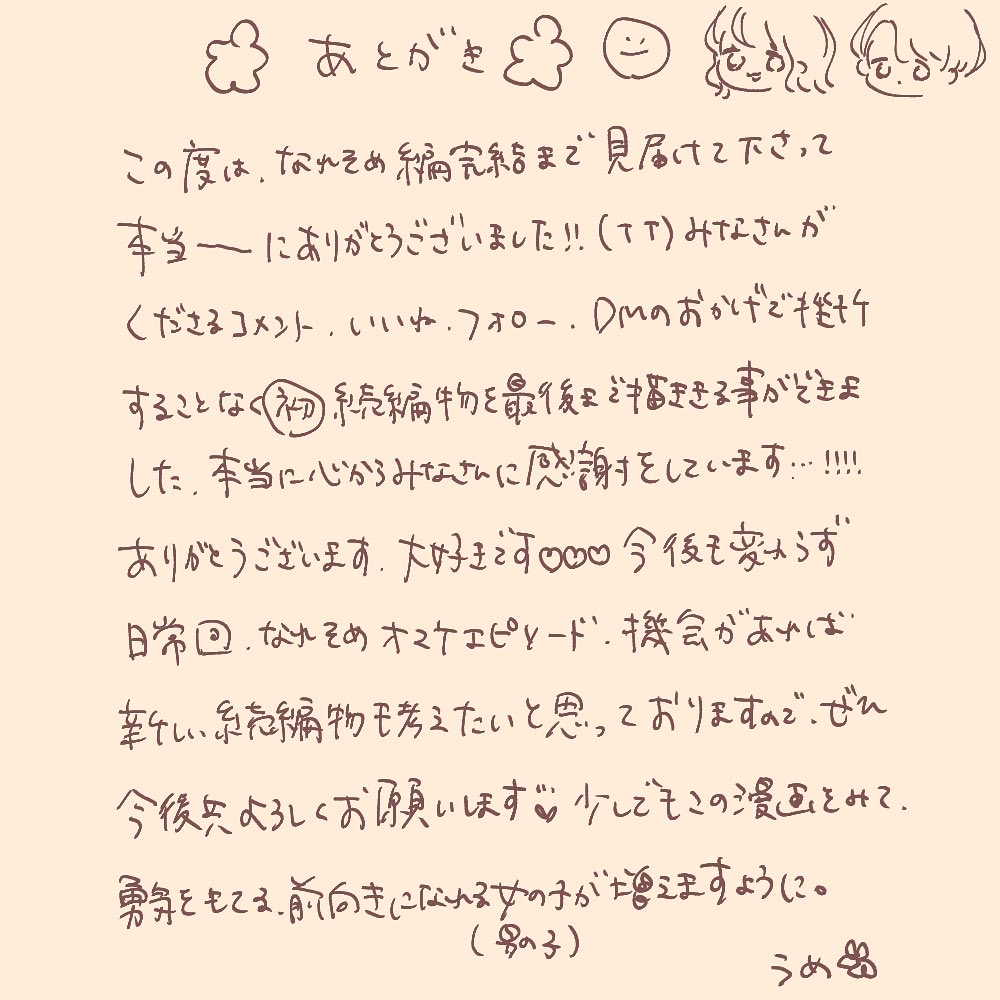 あとがき
この度は、なれそめ編完結まで見届けて下さって
本当ーーにありがとうございました!!(TT)みなさんが
くださるコメント、いいね、フォロー、DMのおかげで挫折
することなく初続編物を最後まで描ききる事ができま
した、本当に心からみなさんに感謝をしています…!!!!
ありがとうございます、大好きです♡♡♡今後も変わらず
日常回、なれそめオマケエピソード、機会があれば
新しい続編物も考えたいと思っておりますので、ぜひ
今後共よろしくお願いします♥少しでもこの漫画をみて、
勇気をもてる、前向きになれる女の子が増えますように。
(男の子)
うめ